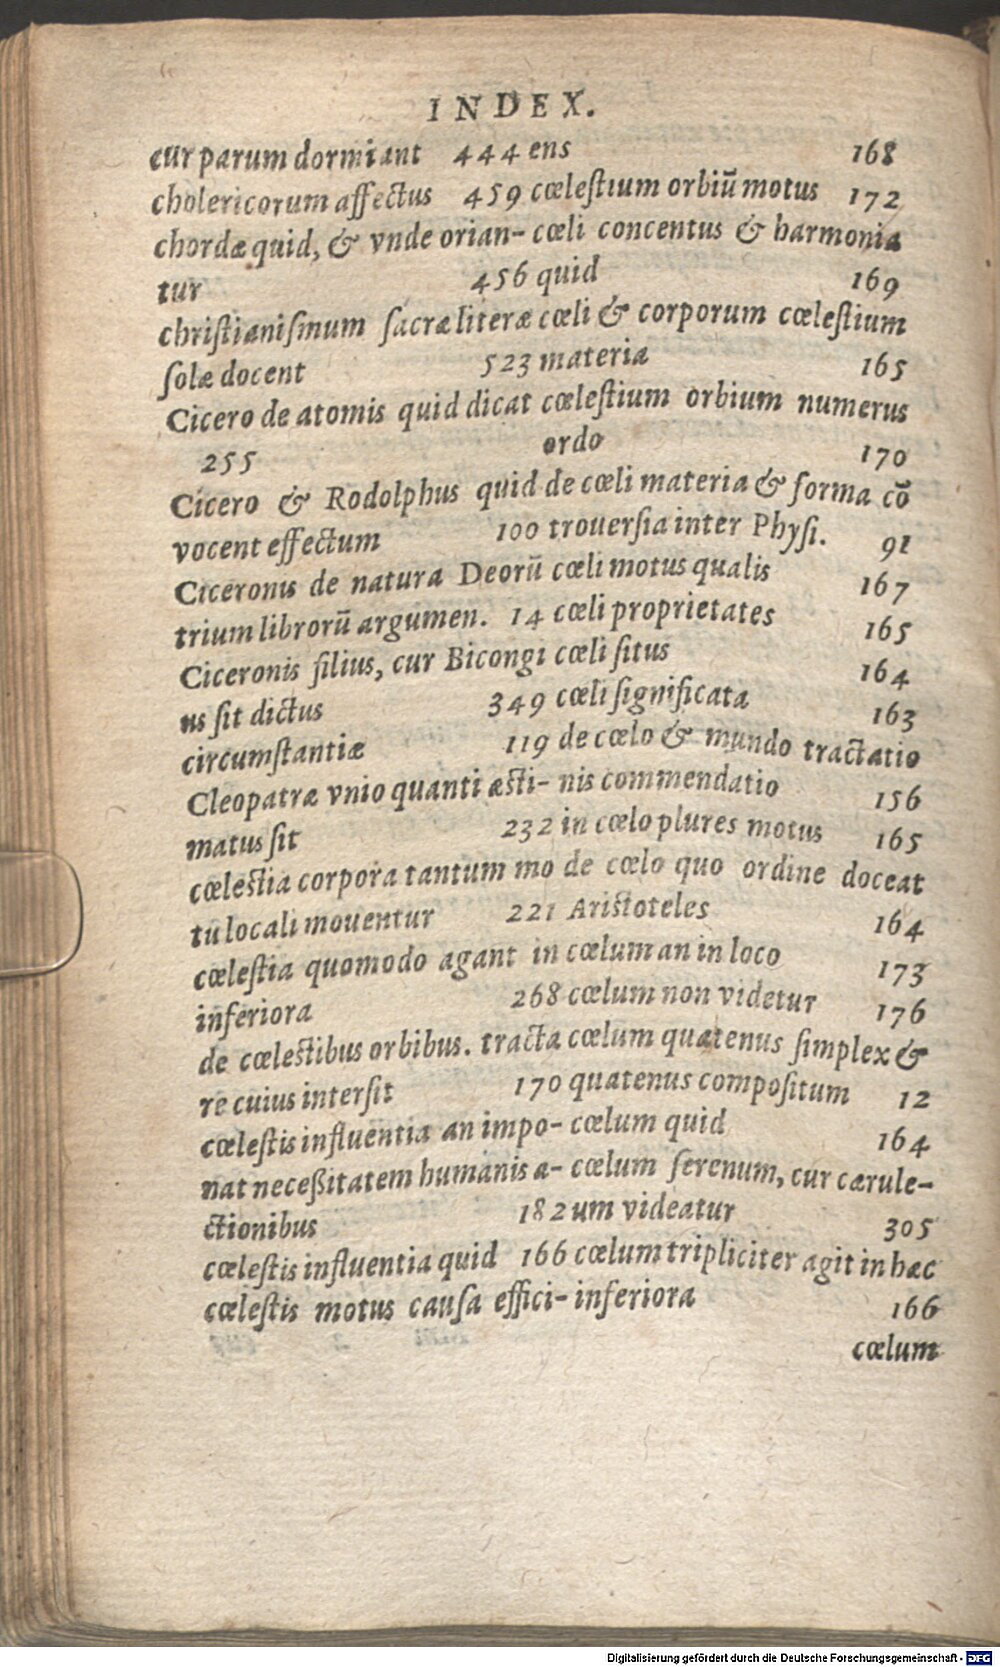 INDEX.
cur parum dormiant 444
cholericorum affectus 459
chordæ quid, & vnde orian-
tur 456
christianiſmum ſacræ literæ
ſolæ docent 523
Cicero de atomis quid dicat
255
Cicero & Rodolphus quid
vocent effectum 100
Ciceronis de natura Deorū
trium librorū argumen. 14
Ciceronis filius, cur Bicongi
us ſit dictus 349
circumſtantiæ 119
Cleopatræ vnio quanti æſti-
matus ſit 232
cœleſtia corpora tantum mo
tu locali mouentur 221
cœleſtia quomodo agant in
inferiora 268
de cœleſtibus orbibus. tracta
re cuius interſit 170
cœleſtis influentia an impo-
nat neceßitatem humanis a-
ctionibus 182
cœleſtis influentia quid 166
cœleſtis motus cauſa effici-
ens 168
cœleſtium orbiū motus 172
cœli concentus & harmonia
quid 169
cœli & corporum cœleſtium
materia 165
cœleſtium orbium numerus
ordo 170
de cœli materia & forma cō
trouerſia inter Phyſi. 91
cœli motus qualis 167
cœli proprietates 165
cœli ſitus 164
cœli ſignificata 163
de cœlo & mundo tractatio
nis commendatio 156
in cœlo plures motus 165
de cœlo quo ordine doceat
Ariſtoteles 164
cœlum an in loco 173
cœlum non videtur 176
cœlum quatenus ſimplex &
quatenus compoſitum 12
cœlum quid 164
cœlum ſerenum, cur cærule-
um videatur 305
cœlum tripliciter agit in hæc
inferiora 166
cœlum
Digitalisierung gefördert durch die Deutsche Forschungsgemeinschaft - DFG